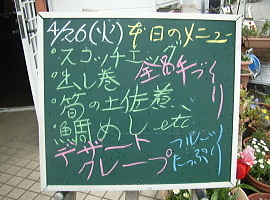 4/26(火)本日のメニュー
・スコッチエッグ
・出し巻
・筍の土佐煮、、
・鯛めし etc
全品手づくり
デザート
クレープ
フルーツ
たっぷり